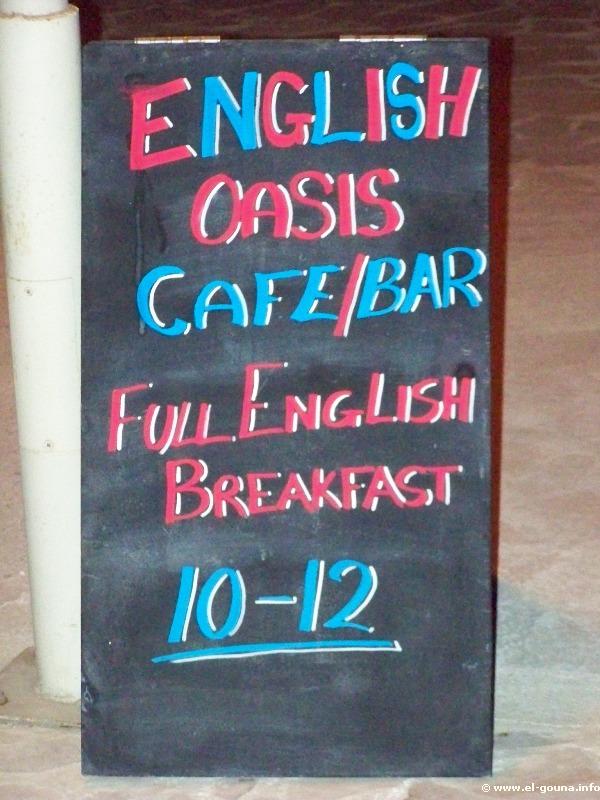 ENGLISH
OASIS
CAFE/BAR
FULL ENGLISH
BREAKFAST
10-12
© www.el-gouna.info